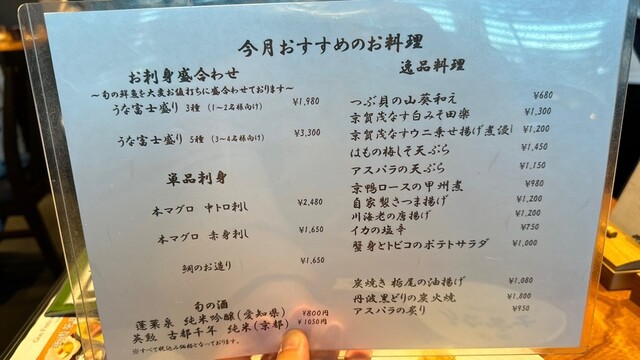 今月おすすめのお料理
お刺身盛合わせ
～旬の鮮魚を大変お値打ちに盛合わせております～
うな富士盛り 3種 (1～2名様向け) ¥1,980
うな富士盛り 5種 (3～4名様向け) ¥3,300
単品刺身
本マグロ 中トロ刺し ¥2,480
本マグロ 赤身刺し ¥1,650
鯛のお造り ¥1,650
旬の酒
蓬莱泉 純米吟醸(愛知県) ¥800円
英勲 古都千年 純米(京都) ¥1050円
※すべて税込み価格となっております。
逸品料理
つぶ貝の山葵和え ¥680
京賀茂なす白みそ田楽 ¥1,300
京賀茂なすウニ乗せ揚げ煮浸し ¥1,200
はもの梅しそ天ぷら ¥1,450
アスパラの天ぷら ¥1,150
京鴨ロースの甲州煮 ¥980
自家製さつま揚げ ¥1,200
川海老の唐揚げ ¥1,200
イカの塩辛 ¥750
蟹身とトビコのポテトサラダ ¥1,000
炭焼き 栃尾の油揚げ ¥1,080
丹波黒どりの炭火焼 ¥1,800
アスパラの炙り ¥950